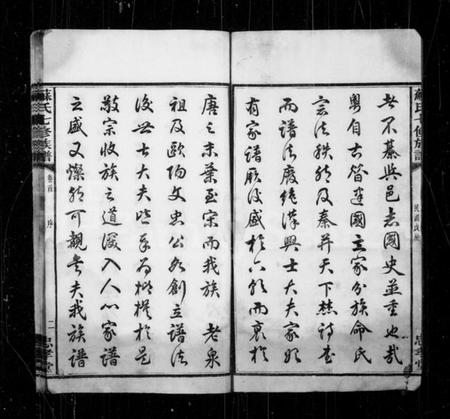 蘇氏七修族譜
忠孝堂
者不綦與邑志國史並重也哉
粵自古昔建國立家分族命氏
宗法秩然及秦并天下焚詩書
而譜法廢絕漢興士大夫家始
有家譜厥後盛於六朝而衰於
唐之末葉至宋而我族 老泉
祖及歐陽文忠公始創立譜法
後世士大夫皆奉為楷模於是
敬宗收族之道深入人心家譜
之盛又燦然可觀矣夫我族譜
蘇氏七修族譜
卷首 序
二
忠孝堂